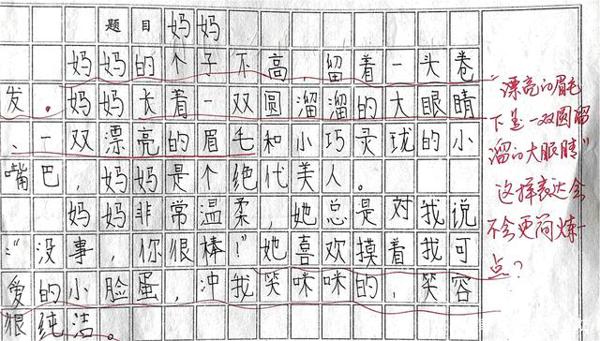 题目 妈妈
妈妈的个子不高,留着一头卷
发。妈妈长着一双圆溜溜的大眼睛
、一双漂亮的眉毛和小巧灵珑的小
嘴巴,妈妈是个绝代美人。
妈妈非常温柔,她总是对我说
:“没事,你很棒!”她喜欢摸着我可
爱的小脸蛋,冲我笑咪咪的,笑容
很纯洁。
“漂亮的眉毛
下是一双圆溜
溜的大眼睛”
这样表达会
不会更简炼一
点?